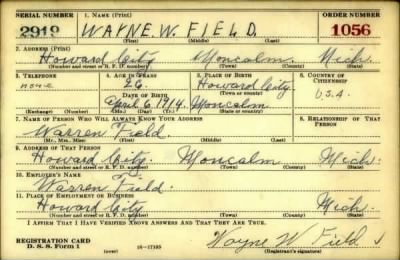 SERIAL NUMBER 1. NAME (Print) ORDER NUMBER
2919 WAYNE. W. FIELD. 1056
(First) (Middle) (Last)
2. ADDRESS (Print)
Howard City Moncalm Mich.
(Number and street or R. F. D. number) (Town) (County) (State)
3. TELEPHONE 4. AGE IN YEARS 5. PLACE OF BIRTH 6. COUNTRY OF CITIZENSHIP
none 26 Howard City U.S.A.
DATE OF BIRTH (Town or county)
April 6 1914. Moncalm
(Exchange) (Number) (Mo.) (Day) (Yr.) (State or country)
7. NAME OF PERSON WHO WILL ALWAYS KNOW YOUR ADDRESS 8. RELATIONSHIP OF THAT PERSON
Warren Field.
(Mr., Mrs., Miss) (First) (Middle) (Last)
9. ADDRESS OF THAT PERSON
Howard City. Moncalm Mich.
(Number and street or R. F. D. number) (Town) (County) (State)
10. EMPLOYER'S NAME
Warren Field.
11. PLACE OF EMPLOYMENT OR BUSINESS
Howard City Mich.
(Number and street or R. F. D. number) (Town) (County) (State)
I AFFIRM THAT I HAVE VERIFIED ABOVE ANSWERS AND THAT THEY ARE TRUE.
REGISTRATION CARD
D. S. S. Form 1 16-17105 Wayne W Field
(over) (Registrant's signature)